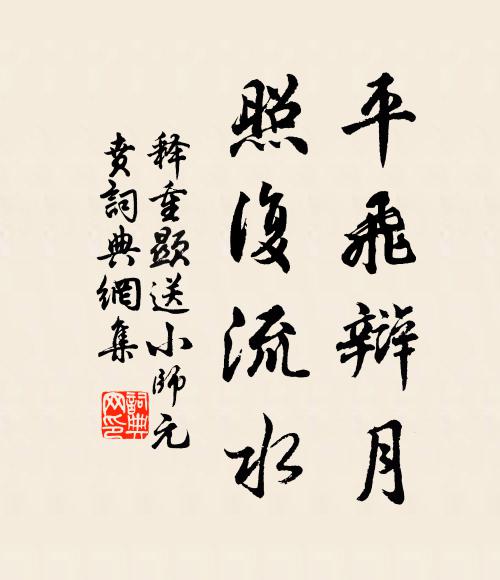 平飛辯月
照復流水
释重顯送小師元
贲詞典網集
詞典
网印